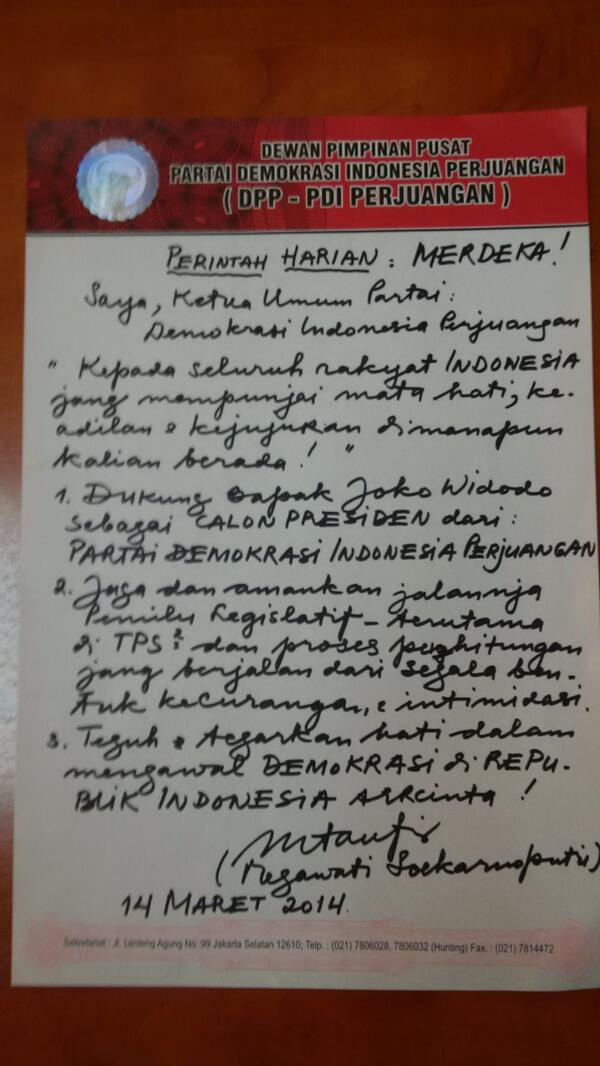 DEWAN PIMPINAN PUSAT
PARTAI DEMOKRASI INDONESIA PERJUANGAN
( DPP - PDI PERJUANGAN )
PERINTAH HARIAN : MERDEKA!
Saya, Ketua Umum Partai :
Demokrasi Indonesia Perjuangan
" Kepada seluruh rakyat INDONESIA
jang mempunjai mata hati, ke-
adilan & kejujuran dimanapun
kalian berada! "
1. Dukung Bapak Joko Widodo
sebagai CALON PRESIDEN dari :
PARTAI DEMOKRASI INDONESIA PERJUANGAN
2. Jaga dan amankan jalannja
Pemilu Legislatif - terutama
di TPS² dan proses penghitungan
jang berjalan dari segala ben-
tuk kecurangan, & intimidasi.
3. Teguh & tegarkan hati dalam
mengawal DEMOKRASI di REPU-
BLIK INDONESIA tercinta !
(Megawati Soekarnoputri)
14 MARET 2014.
Sekretariat : Jl. Lenteng Agung No. 99 Jakarta Selatan 12610; Telp. : (021) 7806028, 7806032 (Hunting) Fax. : (021) 7814472